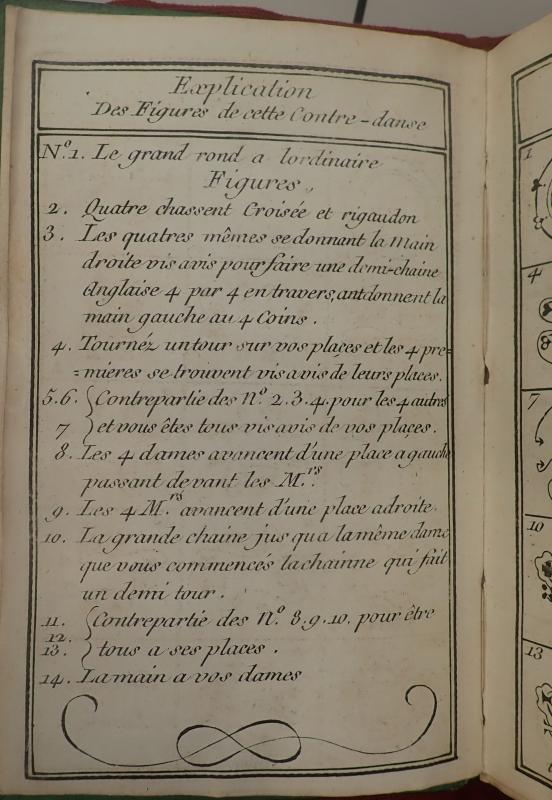 Explication
Des Figures de cette Contre-danse
N.º 1. Le grand rond a lordinaire
Figures,
2. Quatre chassent Croisée et rigaudon
3. Les quatres mêmes se donnant la Main
droite vis avis pour faire une demi-chaine
Anglaise 4 par 4 en travers, ant donnent la
main gauche au 4 Coins.
4. Tournéz un tour sur vos places et les 4 pre=
=mieres se trouvent vis avis de leurs places.
5.6. { Contrepartie des N.º 2.3.4. pour les 4 autres
7 } et vous êtes tous vis avis de vos places.
8. Les 4 dames avancent d'une place a gauche
passant devant les M.rs
9. Les 4 M.rs avancent d'une place adroite.
10. La grande chaine jus qu a la même dame
que vous commencés la chainne qui fait
un demi tour.
11. { Contrepartie des N.º 8.9.10. pour être
12.
13. } tous a ses places.
14. La main a vos dames
1
4
7
10
13